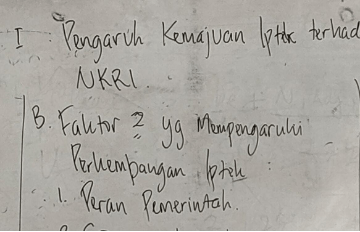 I Pengaruh Kemajuan Iptek terhad
NKRI.
B. Faktor 2 yg Mempengaruhi
Perkembangan Iptek :
1. Peran Pemerintah.